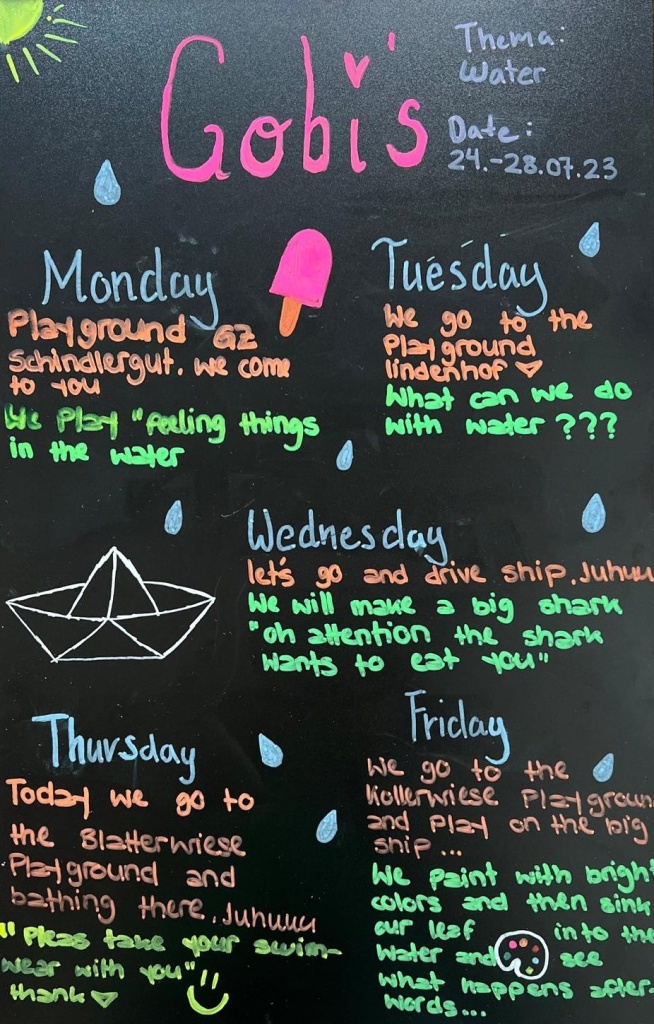 Gobi's
Thema:
Water
Date:
24.-28.07.23
Monday
Playground GZ
Schindlergut. We come
to you
We Play "feeling things
in the water
Tuesday
We go to the
Playground
lindenhof
What can we do
with water ???
Wednesday
let's go and drive ship. Juhuu
We will make a big shark
"oh attention the shark
wants to eat you"
Thursday
Today we go to
the Blatterwiese
Playground and
bathing there. Juhuuu
"Pleas take your swim-
wear with you"
thank
Friday
We go to the
Kollerwiese Playground
and play on the big
ship...
We paint with bright
colors and then sink
our leaf into the
water and see
what happens after-
words...